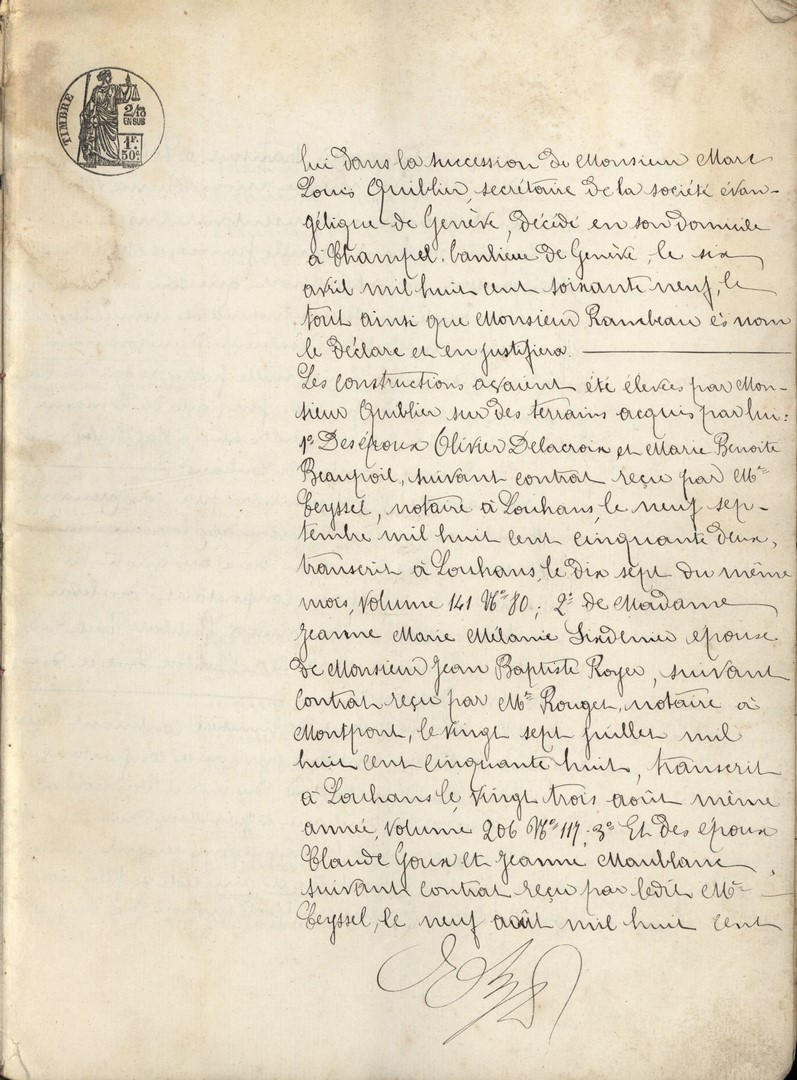 TIMBRE
2/10
EN SUS
1F.
50c.
lui dans la succession de Monsieur Marc
Louis Quiblier, secrétaire de la société évan-
gélique de Genève, décédé en son domicile
à Champel, banlieue de Genève, le six
avril mil huit cent soixante neuf, le
tout ainsi que Monsieur Rambeau ès nom
le déclare et en justifiera.
Les constructions avaient été élevées par Mon-
sieur Quiblier sur des terrains acquis par lui:
1º Des époux Olivier Delacroix et Marie Benoite
Beaupoil, suivant contrat reçu par Me
Teyssel, notaire à Louhans, le neuf sep-
tembre mil huit cent cinquante deux,
transcrit à Louhans, le dix sept du même
mois, volume 141 Nº 80; 2º de Madame
Jeanne Marie Mélanie épouse
de Monsieur Jean Baptiste Royer, suivant
contrat reçu par Me Rouget, notaire à
Montpont, le vingt sept juillet mil
huit cent cinquante huit, transcrit
à Louhans le vingt trois août même
année, volume 206 Nº 117; 3º Et des époux
Claude Goux et Jeanne Maublanc,
suivant contrat reçu par ledit Me
Teyssel, le neuf août mil huit cent